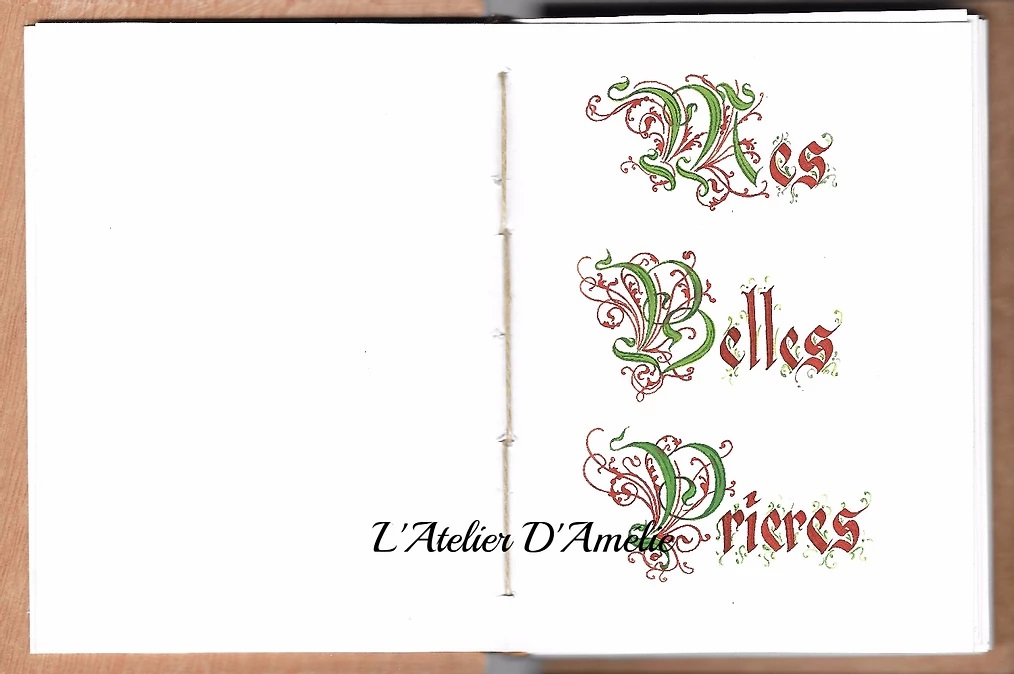 Mes
Belles
Prieres
L'Atelier D'Amélie